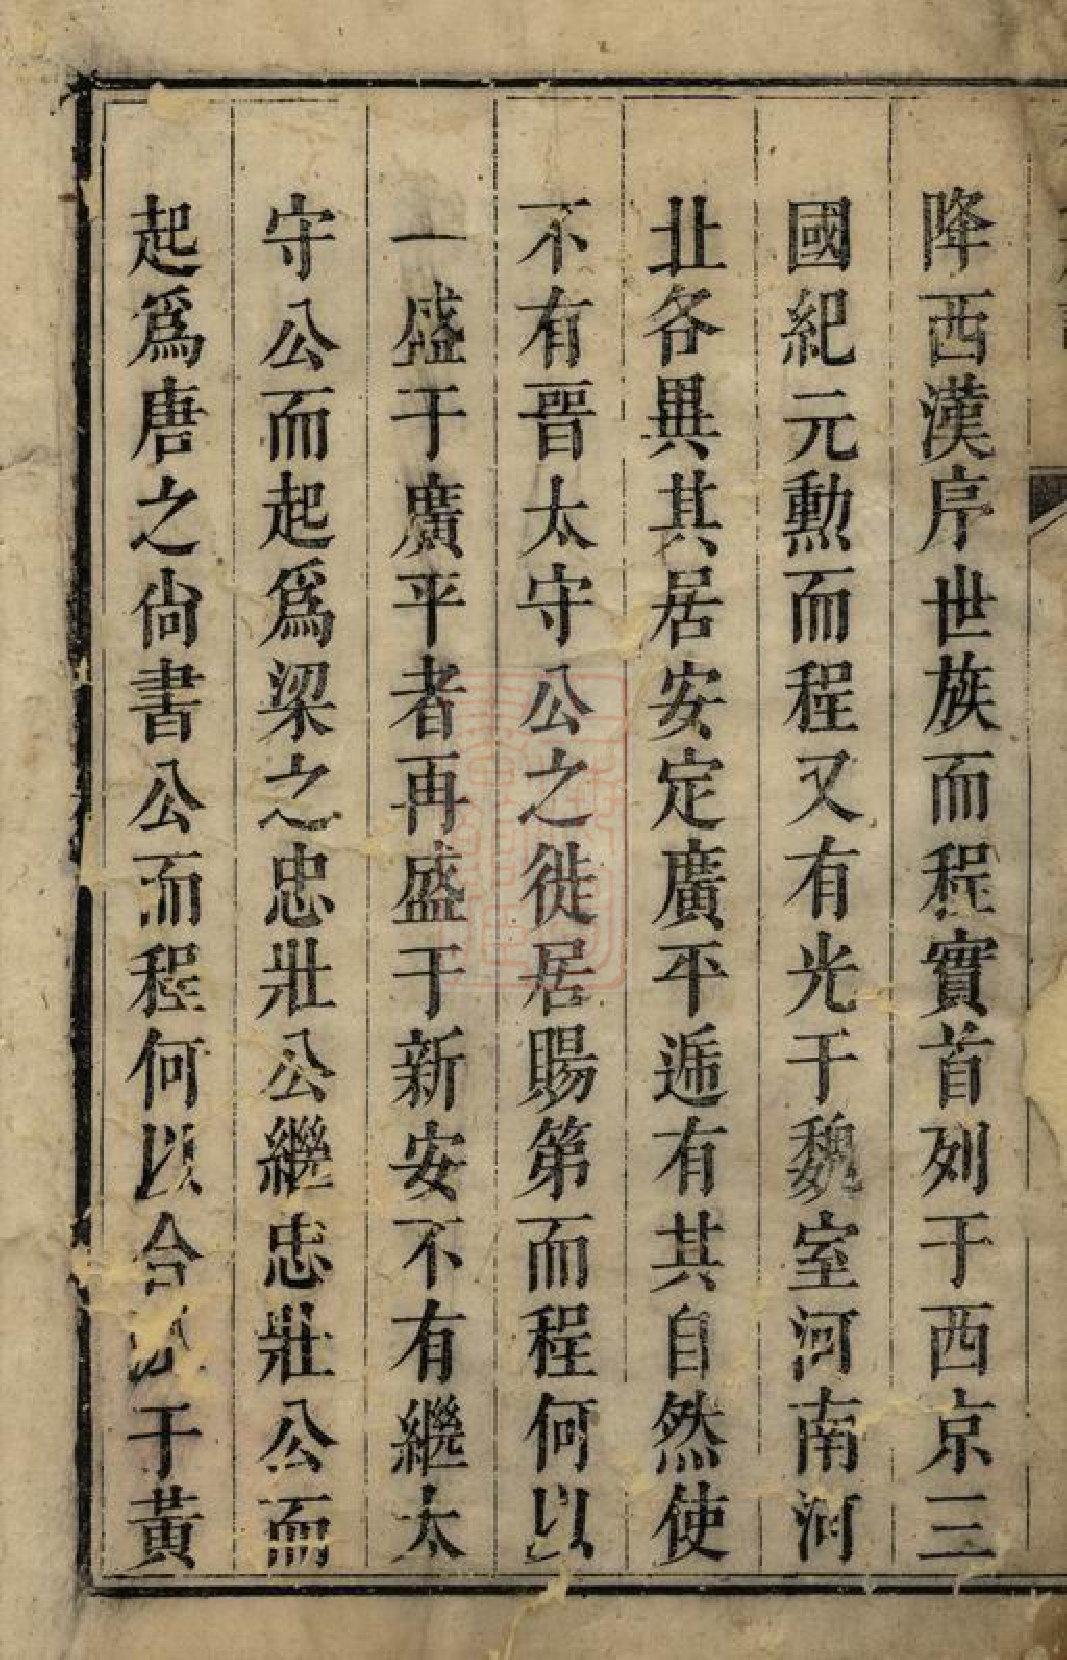 降西漢序世族而程實首列于西京三
國紀元勲而程又有光于魏室河南河
北各異其居安定廣平遞有其自然使
不有晋太守公之徙居賜第而程何以
一盛于廣平者再盛于新安不有繼太
守公而起爲梁之忠壯公繼忠壯公而
起爲唐之尙書公而程何以合于黃